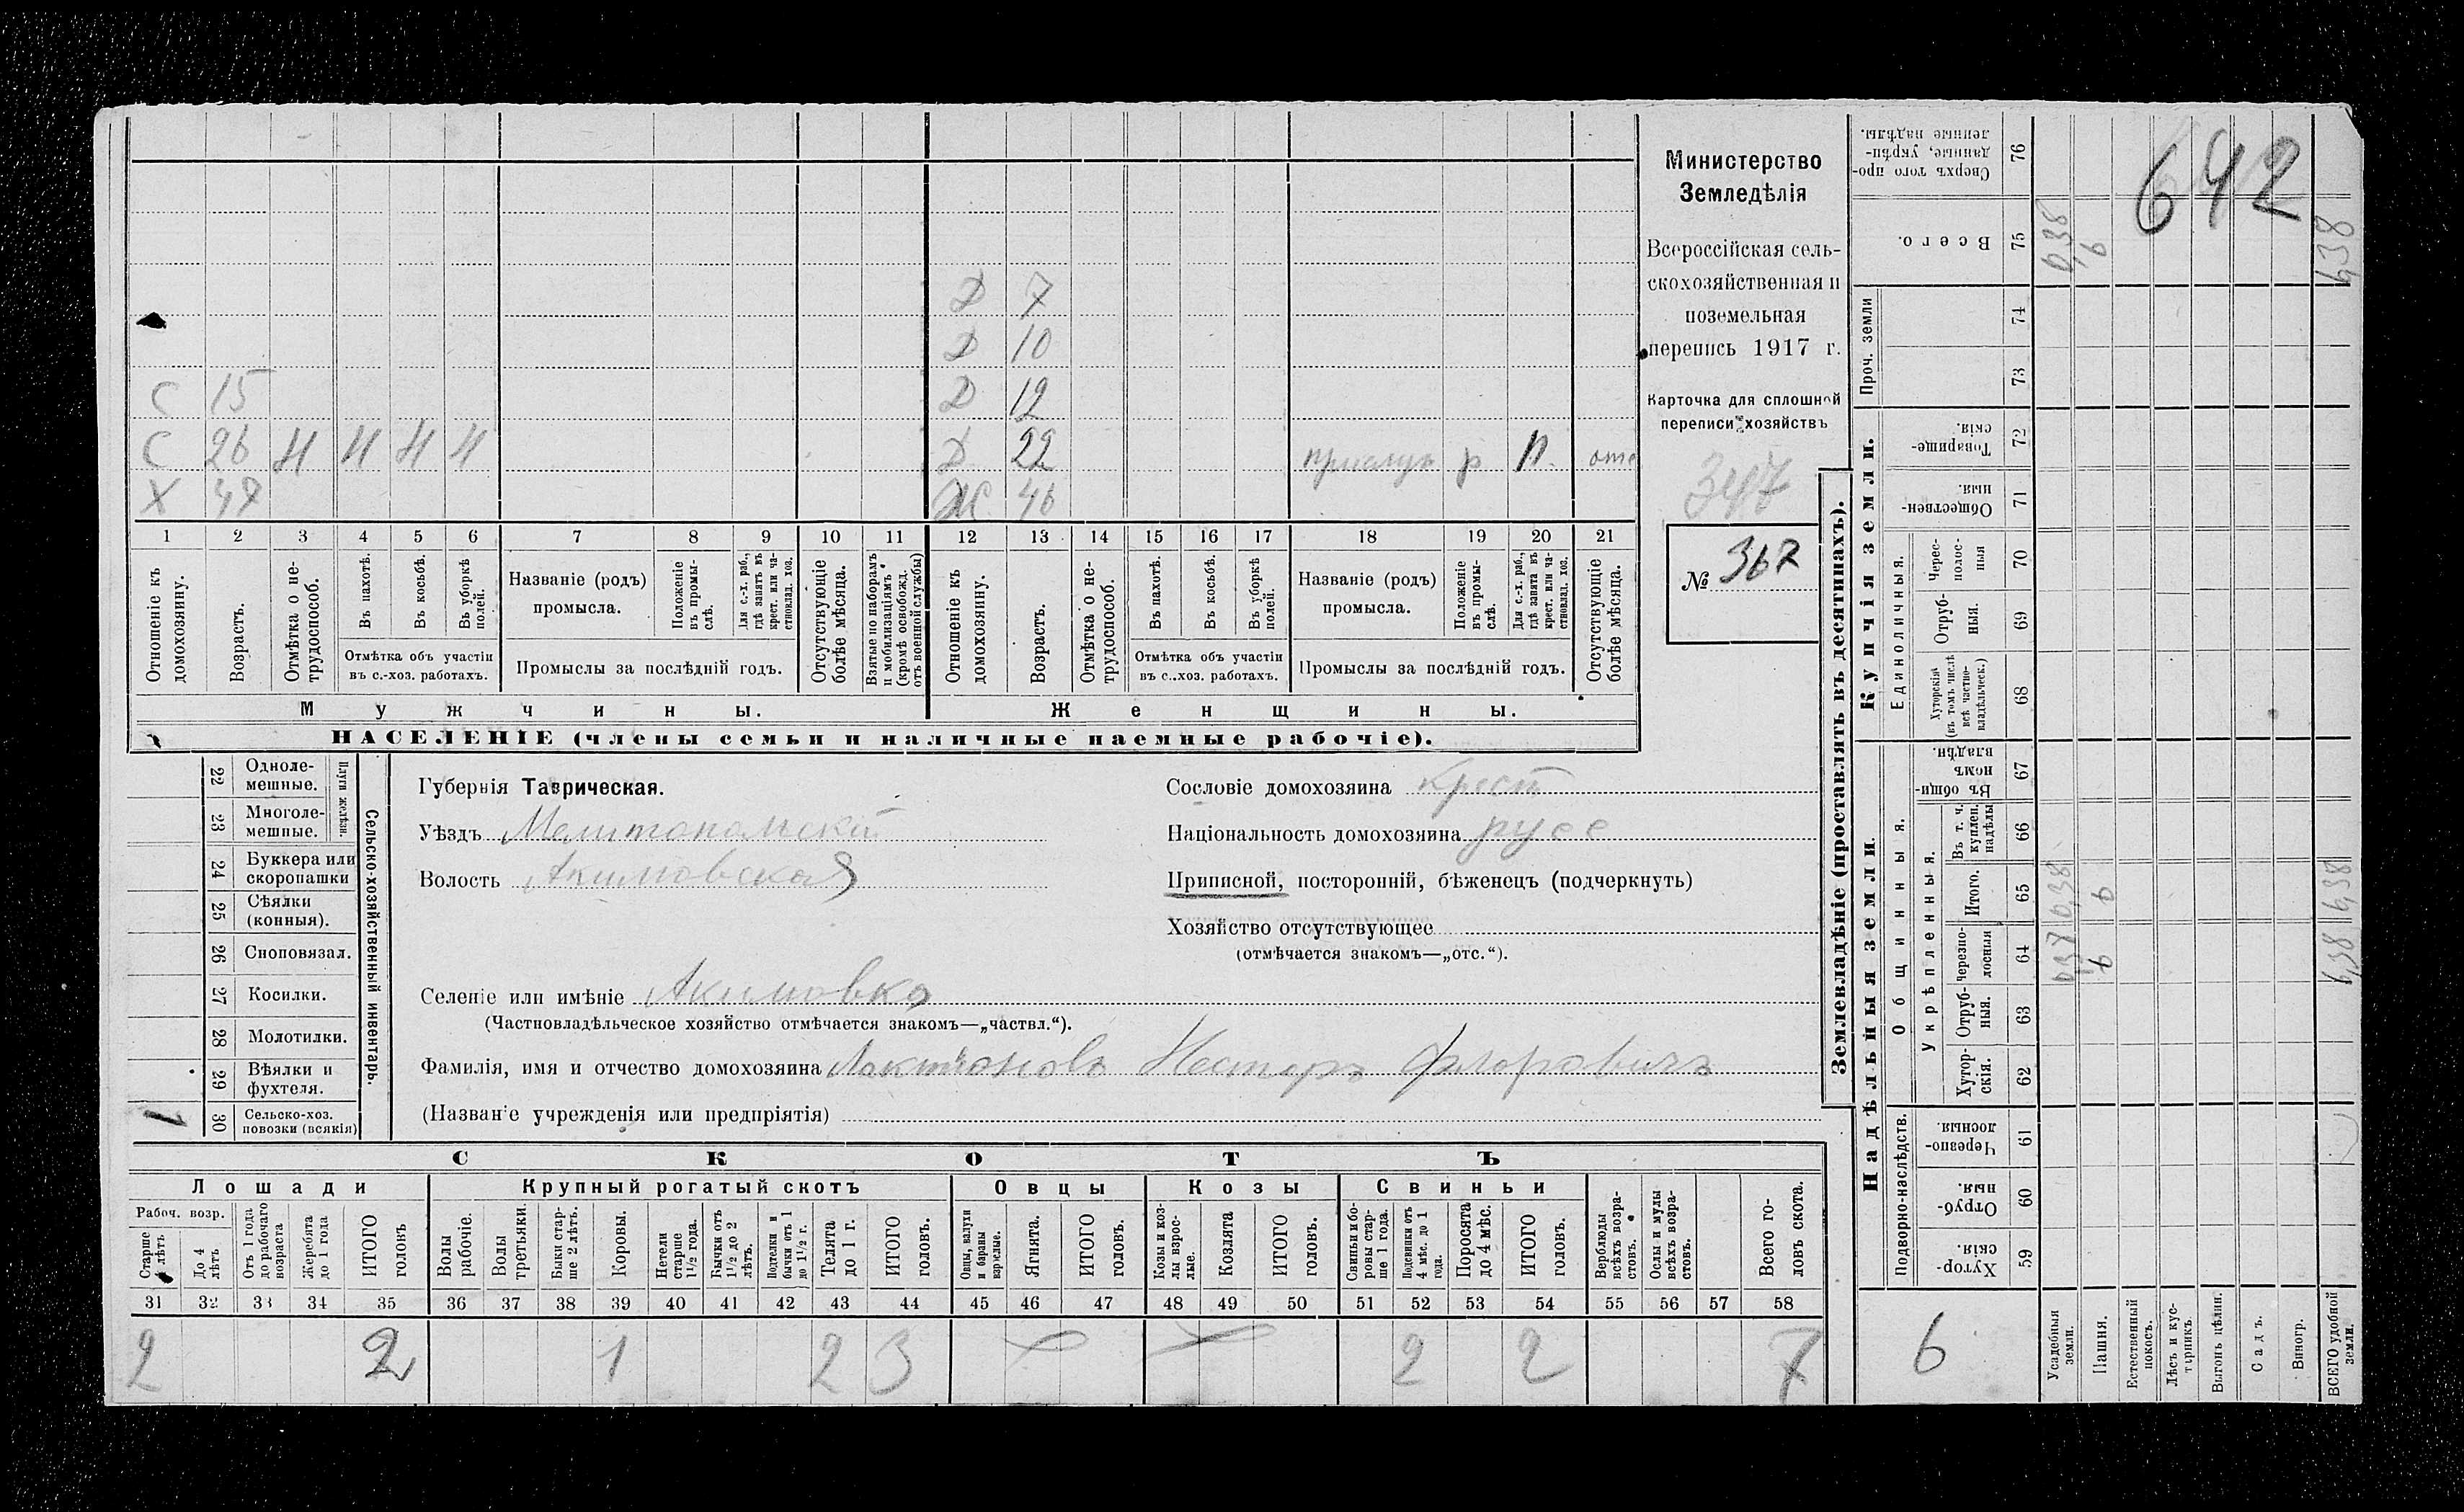 Д 7
Д 10
С 15 Д 12
С 26 Н Н Н Н Д 22 р П.
Х 47 Ж 46
1 2 3 4 5 6 7 8 9 10 11 12 13 14 15 16 17 18 19 20 21
Отношеніе къ домохозяину.
Возрастъ.
Отмѣтка о не-
трудоспособ.
Въ пахотѣ.
Въ косьбѣ.
Въ уборкѣ
полей.
Отмѣтка объ участіи
въ с.-хоз. работахъ.
Названіе (родъ)
промысла.
Положеніе
въ промы-
слѣ.
Для с.-х. раб.,
гдѣ занятъ въ
крест. или ча-
стновлад. хоз.
Промыслы за послѣдній годъ.
Отсутствующіе
болѣе мѣсяца.
Взятые по наборамъ
и мобилизаціямъ
(кромѣ освобожд.
отъ военной службы)
Отношеніе къ
домохозяину.
Возрастъ.
Отмѣтка о не-
трудоспособ.
Въ пахотѣ.
Въ косьбѣ.
Въ уборкѣ
полей.
Отмѣтка объ участіи
въ с..хоз. работахъ.
Названіе (родъ)
промысла.
Положеніе
въ промы-
слѣ.
Для с.-х. раб.,
гдѣ занята въ
крест. или ча-
стновлад. хоз.
Промыслы за послѣдній годъ.
Отсутствующіе
болѣе мѣсяца.
Мужчины. Женщины.
НАСЕЛЕНІЕ (члены семьи и наличные наемные рабочіе).
Министерство
Земледѣлія
Всероссійская сель-
скохозяйственная и
поземельная
перепись 1917 г.
Карточка для сплошной
переписи хозяйствъ
347
№ 362
22 Одноле-
мешные.
23 Многоле-
мешные.
Плуги желѣзн.
24 Буккера или
скоропашки
25 Сѣялки
(конныя).
26 Сноповязал.
27 Косилки.
28 Молотилки.
29 Вѣялки и
фухтеля.
1 30 Сельско-хоз.
повозки (всякія)
Сельско-хозяйственный инвентарь.
Губернія Таврическая.
Уѣздъ Мелитопольскій
Волость Акимовская
Сословіе домохозяина крест
Національность домохозяина русс
Приписной, посторонній, бѣженецъ (подчеркнуть)
Хозяйство отсутствующее
(отмѣчается знакомъ—„отс.“).
Селеніе или имѣніе Акимовка
(Частновладѣльческое хозяйство отмѣчается знакомъ—„частвл.“).
Фамилія, имя и отчество домохозяина Локтіоновъ Несторъ Флоровичъ
(Названіе учрежденія или предпріятія)
СКОТЪ
Лошади Крупный рогатый скотъ Овцы Козы Свиньи
Рабоч. возр.
Старше
4 лѣтъ
До 4
лѣтъ
Отъ 1 года
до рабочаго
возраста
Жеребята
до 1 года
ИТОГО
головъ
Волы
рабочіе.
Волы
третьяки.
Быки стар-
ше 2 лѣтъ.
Коровы.
Нетели
старше
1½ года.
Бычки отъ
1½ до 2
лѣтъ.
Подтелки и
бычки отъ 1
до 1½ г.
Телята
до 1 г.
ИТОГО
головъ.
Овцы, валухи
и бараны
взрослые.
Ягнята.
ИТОГО
головъ.
Козы и коз-
лы взрос-
лые.
Козлята
ИТОГО
головъ.
Свиньи и бо-
ровы стар-
ше 1 года.
Подсвинки отъ
4 мѣс. до 1
года.
Поросята
до 4 мѣс.
ИТОГО
головъ.
Верблюды
всѣхъ возра-
стовъ.
Ослы и мулы
всѣхъ возра-
стовъ.
Всего го-
ловъ скота.
31 32 33 34 35 36 37 38 39 40 41 42 43 44 45 46 47 48 49 50 51 52 53 54 55 56 57 58
2 2 1 2 3 2 2 7
Землевладѣніе (проставлять въ десятинахъ).
642
Сверхъ того про-
данные, укрѣп-
ленные надѣлы. 76
Всего. 75 0,38 6 6,38
Проч. земли 74 73
Купчія земли.
Товарище-
скія. 72
Обществен-
ныя. 71
Единоличныя.
Черес-
полос-
ныя 70
Отруб-
ныя. 69
Хуторскія
(въ томъ числѣ
всѣ частно-
владѣльческ.) 68
Надѣльныя земли.
Общинныя.
Въ общин-
номъ
владѣн. 67
Укрѣпленныя.
Въ т. ч.
куплен.
надѣлы 66
Итого. 65 0,38 6 6,38
Черезпо-
лосныя 64 6 6,38
Отруб-
ныя. 63
Хутор-
скія. 62
Подворно-наслѣдств.
Черезпо-
лосныя. 61
Отруб-
ныя. 60
Хутор-
скія. 59
6
Усадебныя
земли.
Пашня.
Естественный
покосъ.
Лѣсъ и кус-
тарникъ.
Выгонъ цѣлин.
Садъ.
Виногр.
ВСЕГО удобной
земли.